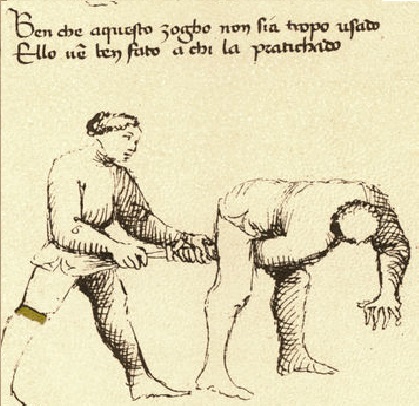 Ben che aquesto zogho non sia tropo usado
Ello vē ben fato a chi la pratichado